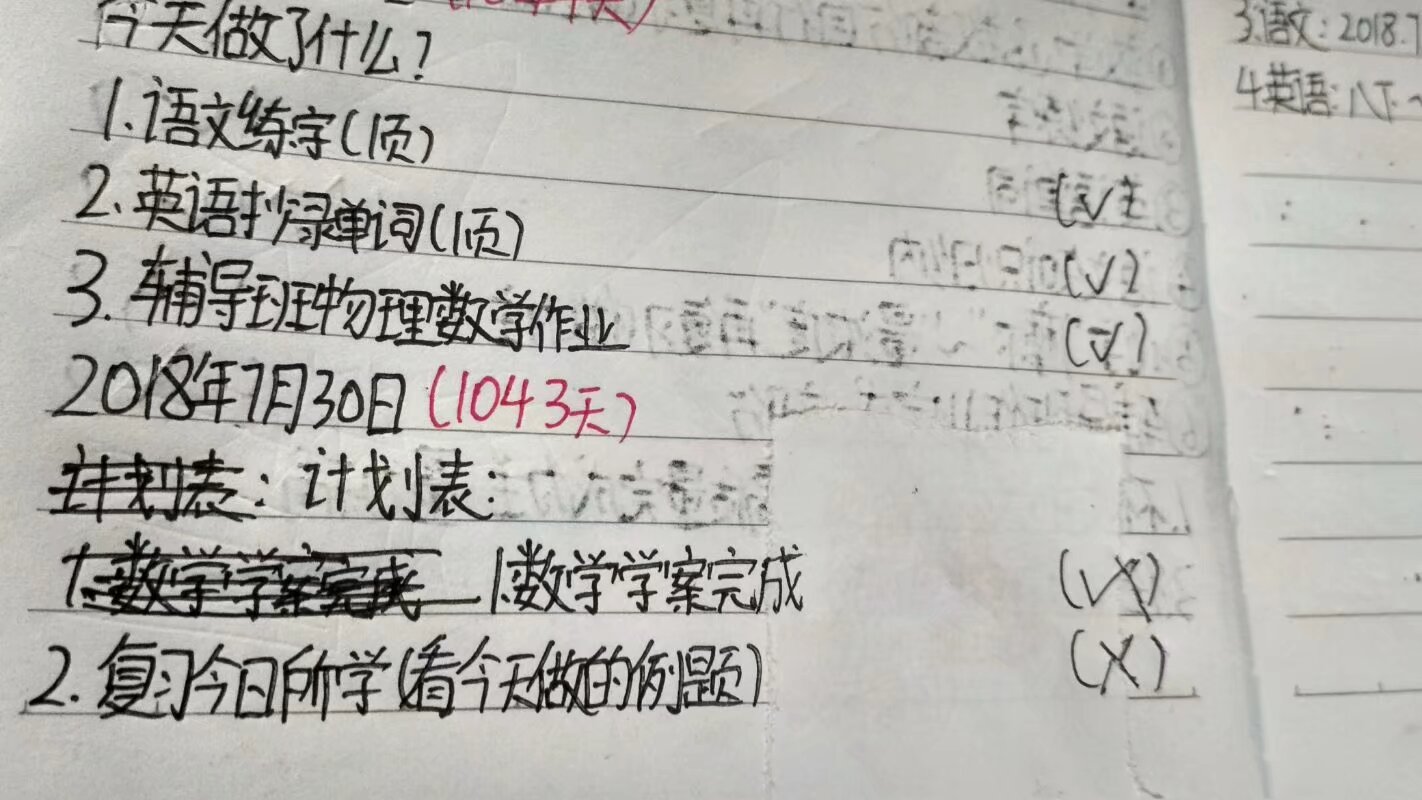 今天做了什么?
1.语文练字(1页)
2.英语抄录单词(1页) (√)
3.辅导班物理数学作业 (√)
(√)
2018年7月30日(1043天)
计划表: 计划表:
1.数学学案完成 1.数学学案完成 (√X)
2.复习今日所学(看今天做的例题) (X)
3.语文:2018.7
4.英语:八下